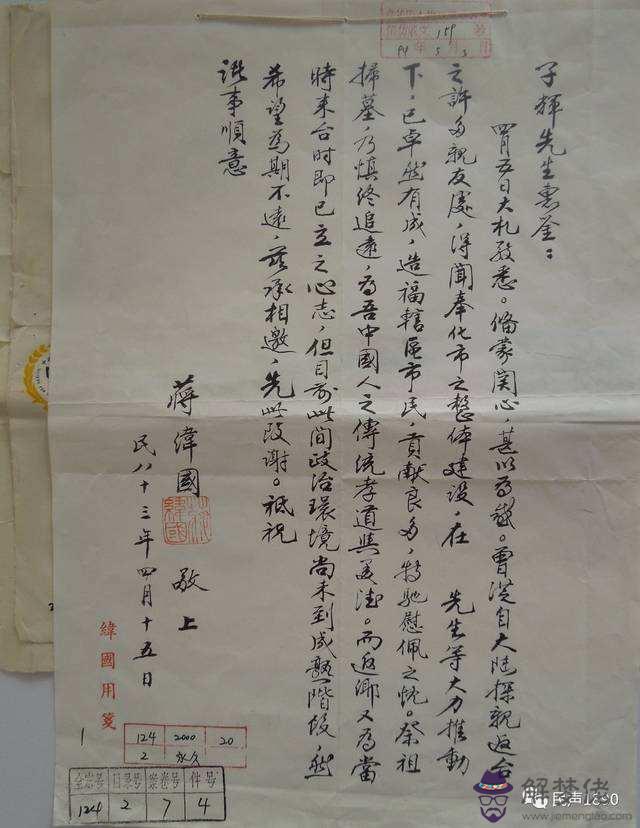 子輝先生惠鉴：
四月五日大札敬悉。備蒙関心，甚以為感。曾從自大陸探親返台
之許多親友處，得聞奉化市之整体建設，在 先生等大力推動
下，已卓然有成，造福轄區市民，貢献良多，特馳慰佩之忱。祭祖
掃墓，乃慎終追遠，為吾中國人之傳統孝道與美德。而返鄉又為當
時来台时即已立之心志，但目前此間政治環境尚未到成熟階段，然
希望為期不遠，茲承相邀，先此致謝。祗祝
諸事順意
蔣緯國 敬上
民八十三年四月十五日
緯國用箋
159
94年5月3日
124 2000 20
2 永久
1
全宗号 目录号 案卷号 件号
124 2 7 4
民声1890
解梦佬
www.jiemenglao.com